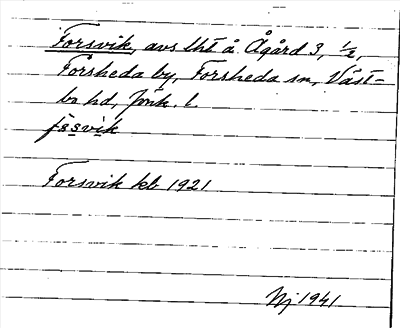 Forsvik, avs lht å Ågård 3, ½,
Forsheda by, Forsheda sn, Väst-
bo hd, Jönk. l.
Forsvik kb 1921
Nj 1941